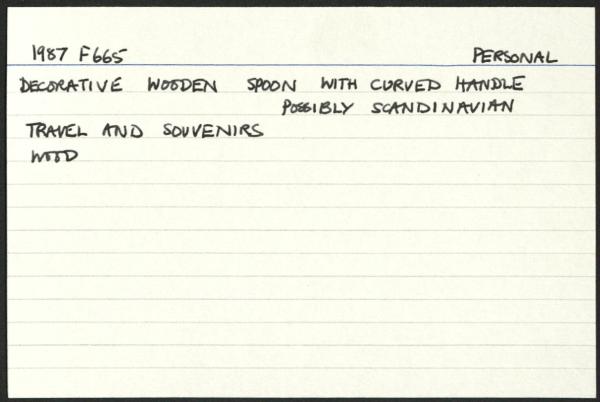 1987 F665 PERSONAL
DECORATIVE WOODEN SPOON WITH CURVED HANDLE
POSSIBLY SCANDINAVIAN
TRAVEL AND SOUVENIRS
WOOD